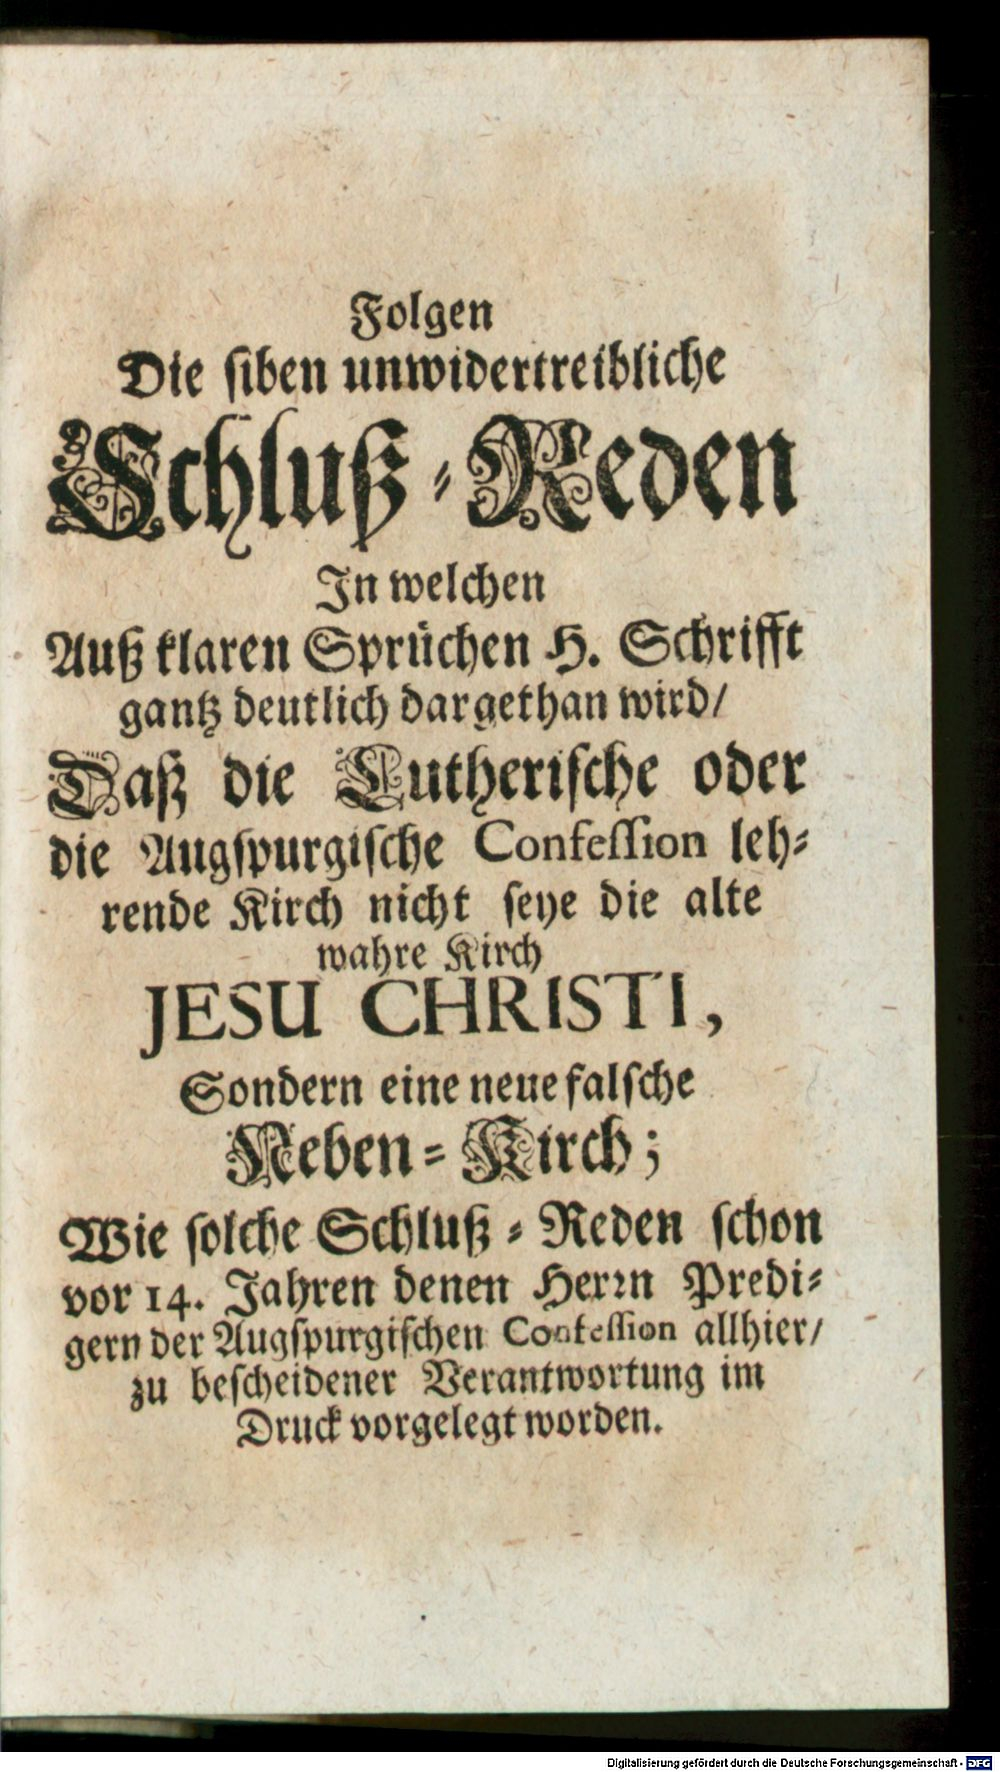 Folgen
Die siben unwidertreibliche
Schluß-Reden
In welchen
Auß klaren Sprüchen H. Schrifft
gantz deutlich dargethan wird/
Daß die Lutherische oder
die Augspurgische Confession leh-
rende Kirch nicht seye die alte
wahre Kirch
JESU CHRISTI,
Sondern eine neue falsche
Neben-Kirch;
Wie solche Schluß-Reden schon
vor 14. Jahren denen Herrn Predi-
gern der Augspurgischen Confession allhier/
zu bescheidener Verantwortung im
Druck vorgelegt worden.
Digitalisierung gefördert durch die Deutsche Forschungsgemeinschaft - DFG